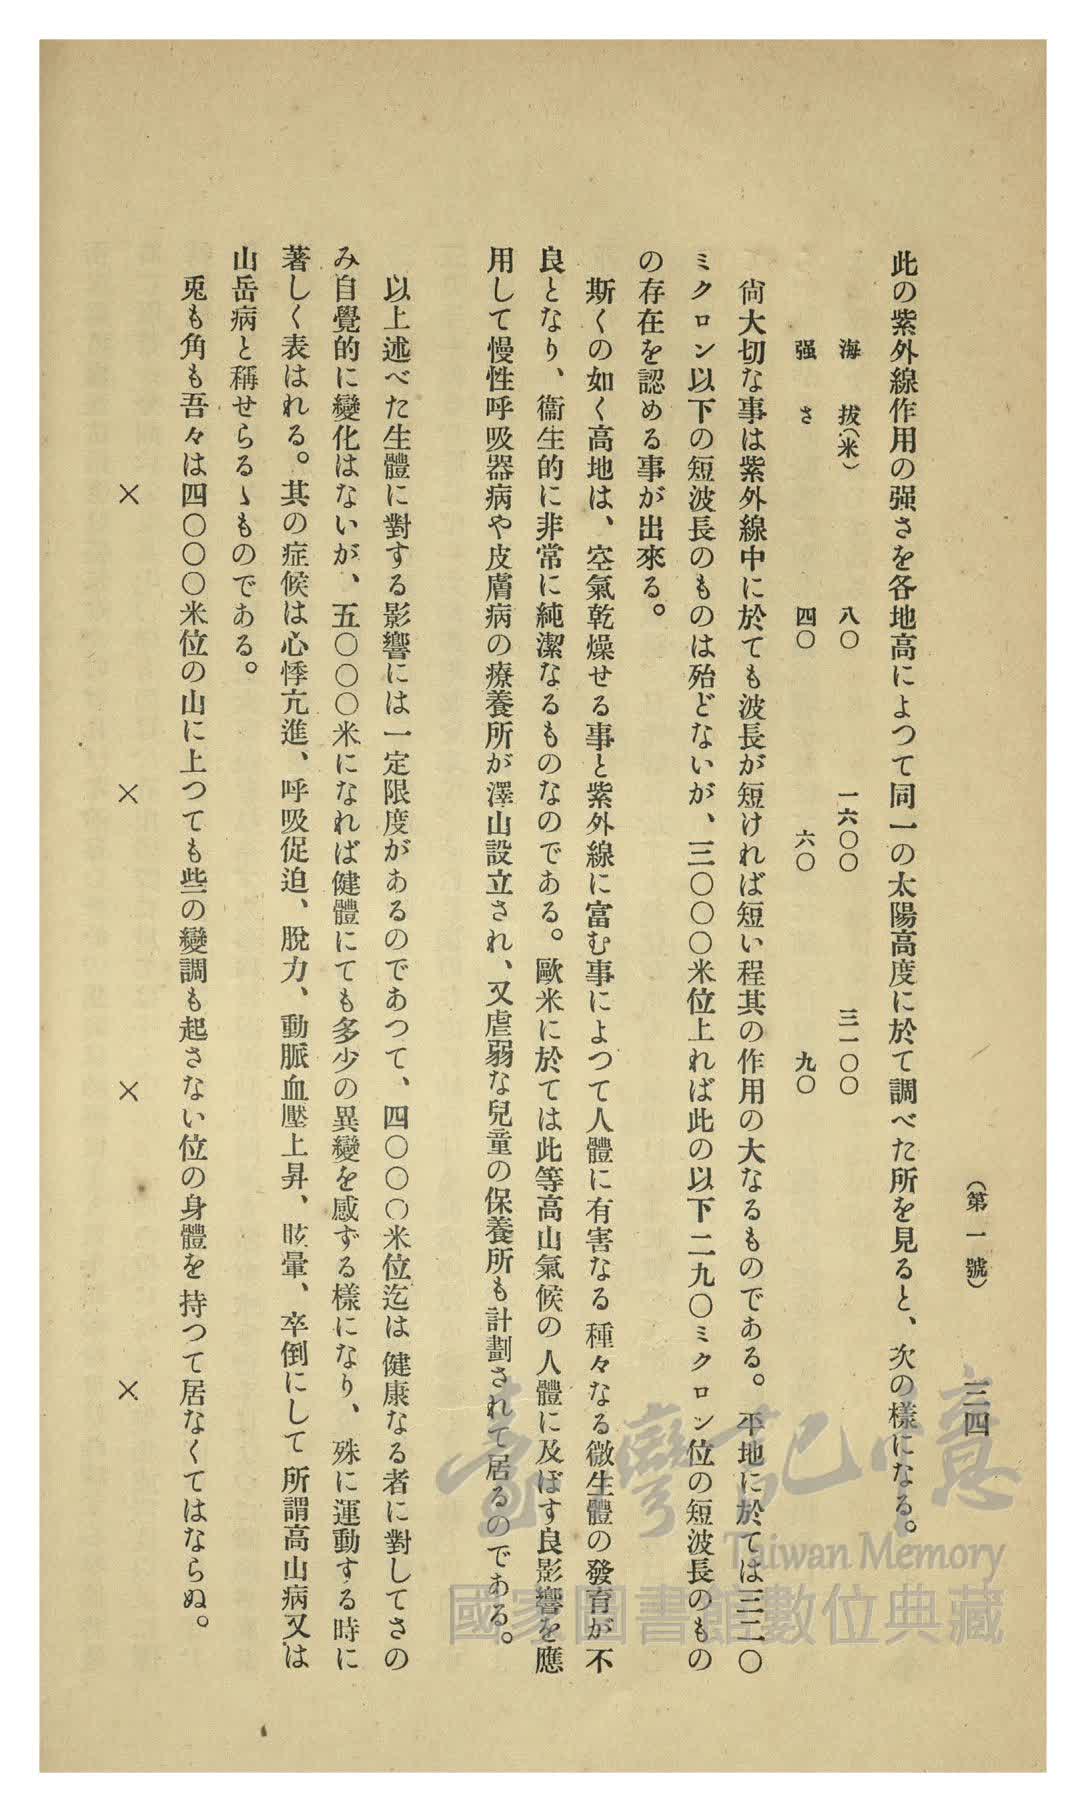 (第一號) 三四
此の紫外線作用の强さを各地高によつて同一の太陽高度に於て調べた所を見ると、次の樣になる。
海拔(米) 八〇 一六〇〇 三一〇〇
强さ 四〇 六〇 九〇
尙大切な事は紫外線中に於ても波長が短ければ短い程其の作用の大なるものである。平地に於ては三二〇
ミクロン以下の短波長のものは殆どないが、三〇〇〇米位上れば此の以下二九〇ミクロン位の短波長のもの
の存在を認める事が出來る。
斯くの如く高地は、空氣乾燥せる事と紫外線に富む事によつて人體に有害なる種々なる微生體の發育が不
良となり、衞生的に非常に純潔なるものなのである。歐米に於ては此等高山氣候の人體に及ぼす良影響を應
用して慢性呼吸器病や皮膚病の療養所が澤山設立され、又虐弱な兒童の保養所も計劃されて居るのである。
以上述べた生體に對する影響には一定限度があるのであつて、四〇〇〇米位迄は健康なる者に對してさの
み自覺的に變化はないが、五〇〇〇米になれば健體にても多少の異變を感ずる樣になり、殊に運動する時に
著しく表はれる。其の症候は心悸亢進、呼吸促迫、脫力、動脈血壓上昇、眩暈、卒倒にして所謂高山病又は
山岳病と稱せらるゝものである。
兎も角も吾々は四〇〇〇米位の山に上つても些の變調も起さない位の身體を持つて居なくてはならぬ。
× × × ×
臺灣記憶
Taiwan Memory
國家圖書館數位典藏